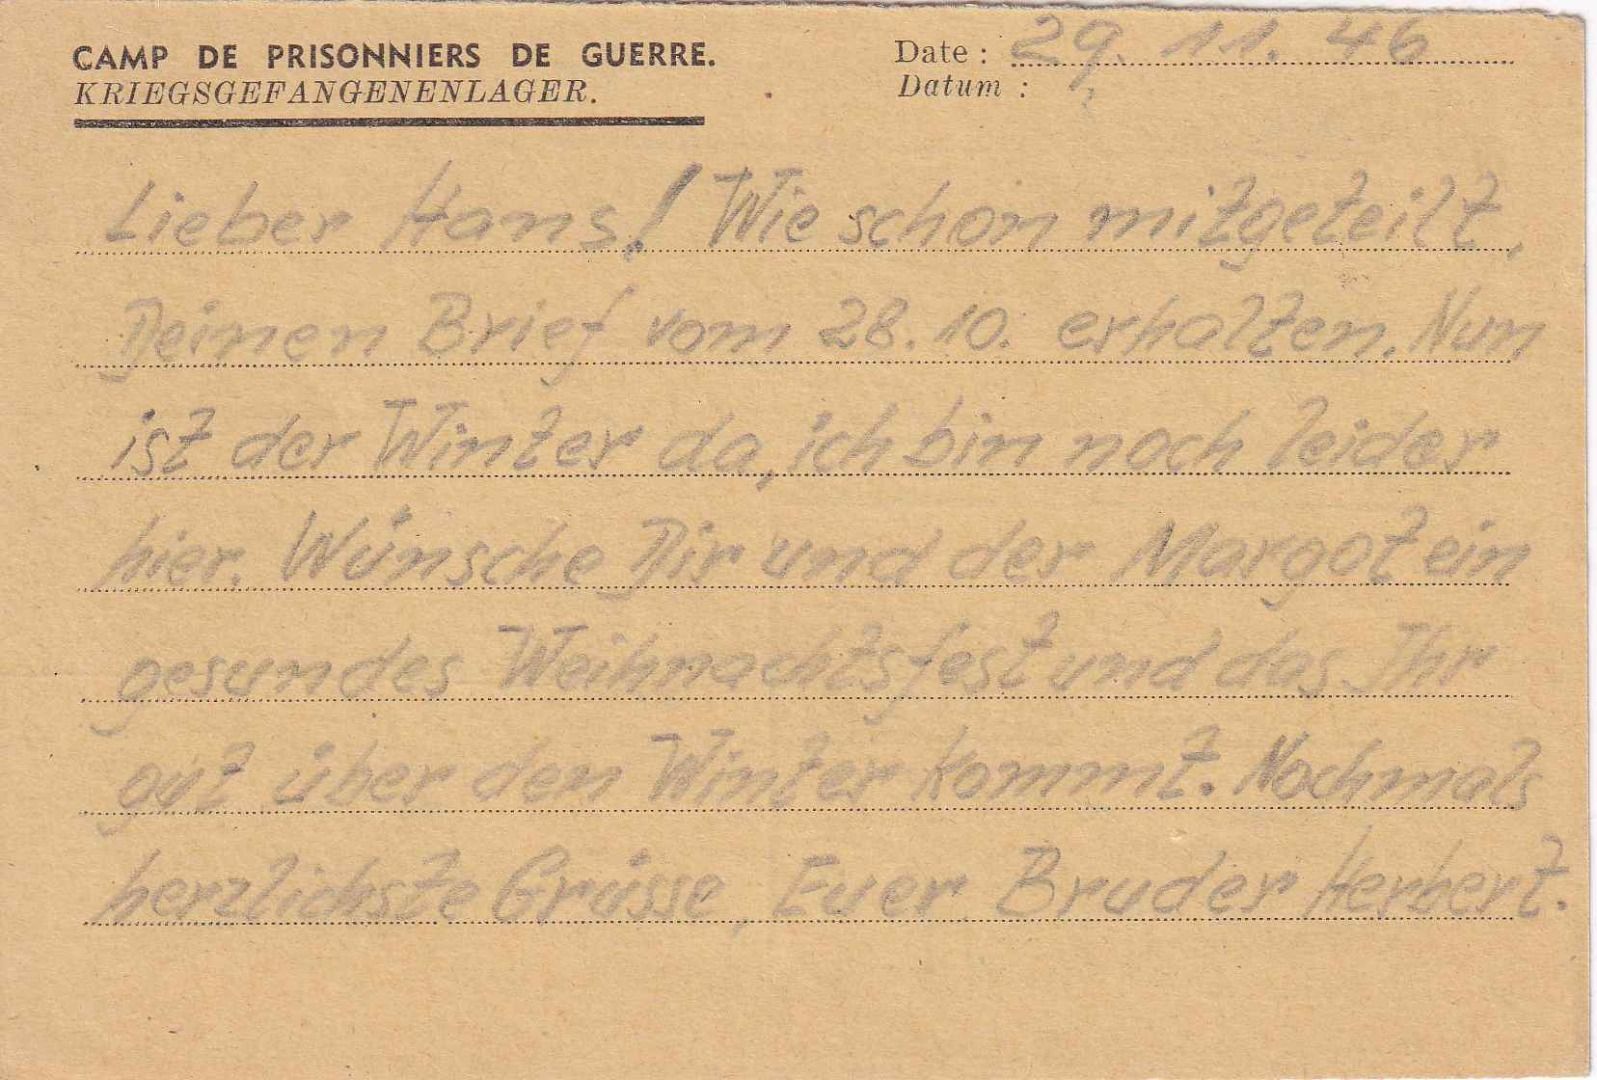 CAMP DE PRISONNIERS DE GUERRE.
KRIEGSGEFANGENENLAGER.
Date : 29. 11. 46
Datum :
Lieber Hans! Wie schon mitgeteilt,
Deinen Brief vom 28.10. erhalten. Nun
ist der Winter da, ich bin noch leider
hier. Wünsche Dir und der Margot ein
gesundes Weihnachtsfest und das Ihr
gut über den Winter kommt. Nochmals
herzlichste Grüsse, Euer Bruder Herbert.